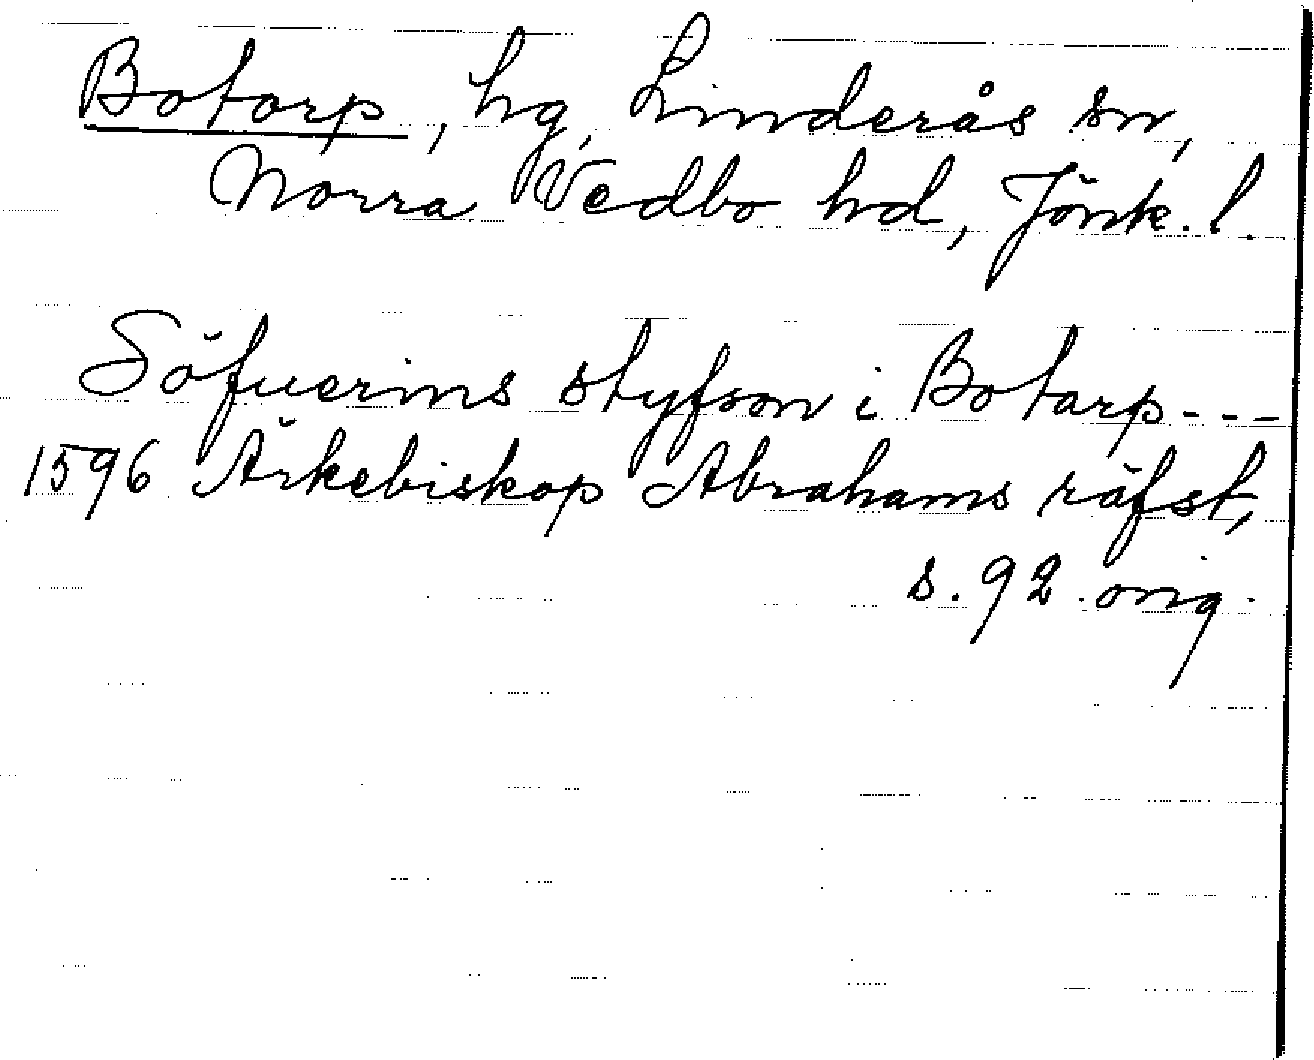 Botorp, hg, Linderås sn,
Norra Vedbo hd, Jönk. l.
Söfuerins styfson i Botarp---
1596 Ärkebiskop Abrahams räfst,
s. 92. orig.